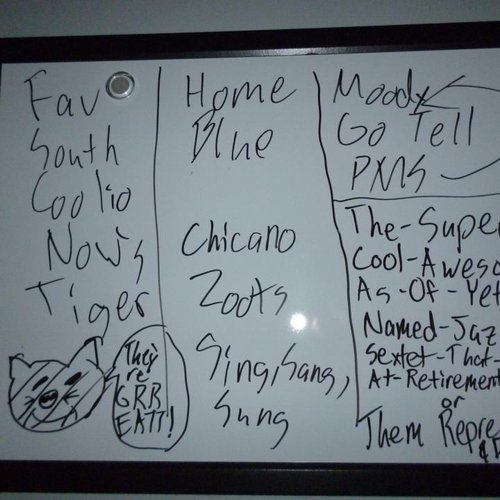 Fav
South
Coolio
Now's
Tiger
They
're
GRR
EATT!
Home
Blue
Chicano
Zoots
Sing, Sang,
Sung
Moody
Go Tell
PMS
The-Super
Cool-Aweso
As-Of-Yet
Named-Jaz
Sextet-That-
At-Retirement
or
Them Repre